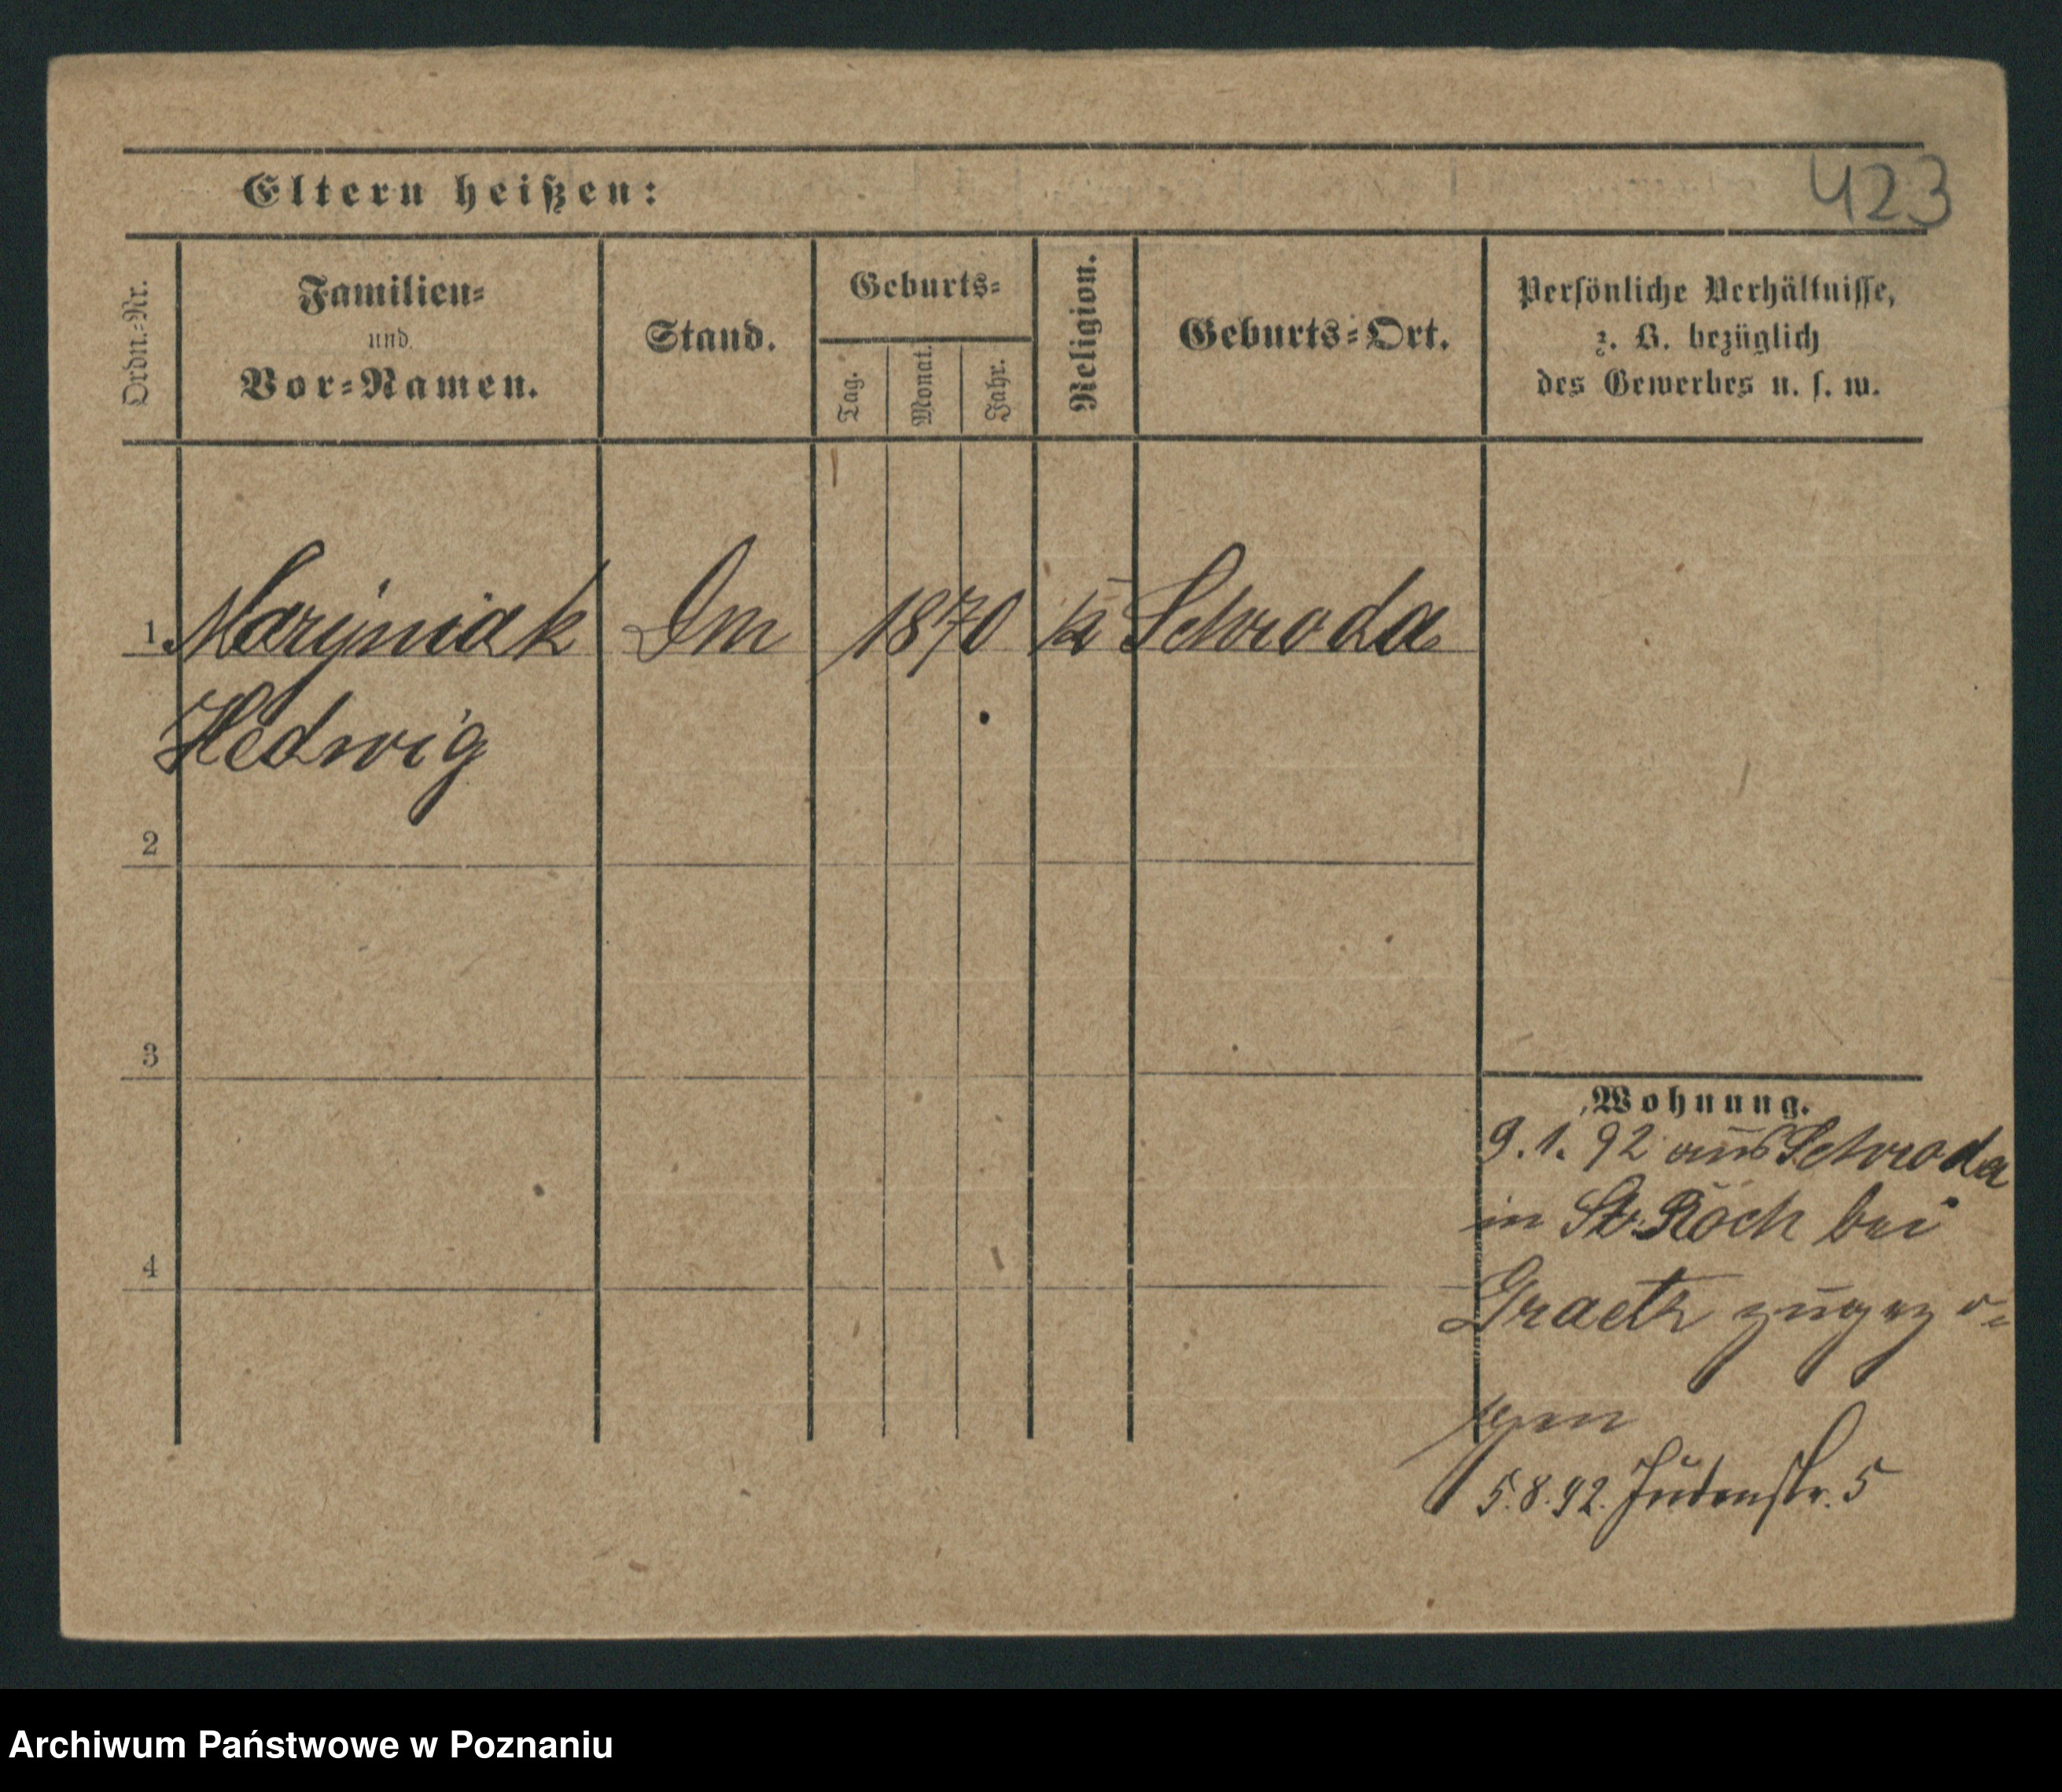 423
Eltern heißen:
Ordn.-Nr.
Familien-
und
Vor-Namen.
Stand.
Geburts-
Tag.
Monat.
Jahr.
Religion.
Geburts-Ort.
Persönliche Verhältnisse,
z. B. bezüglich
des Gewerbes u. s. w.
1. Maryniak Dm 1870 k Schroda
Hedwig
2
3
4
Wohnung.
9.1.92 aus Schroda
in St. Roch bei
Graetz zugezo-
gen
5.8.92. Judenstr. 5
Archiwum Państwowe w Poznaniu